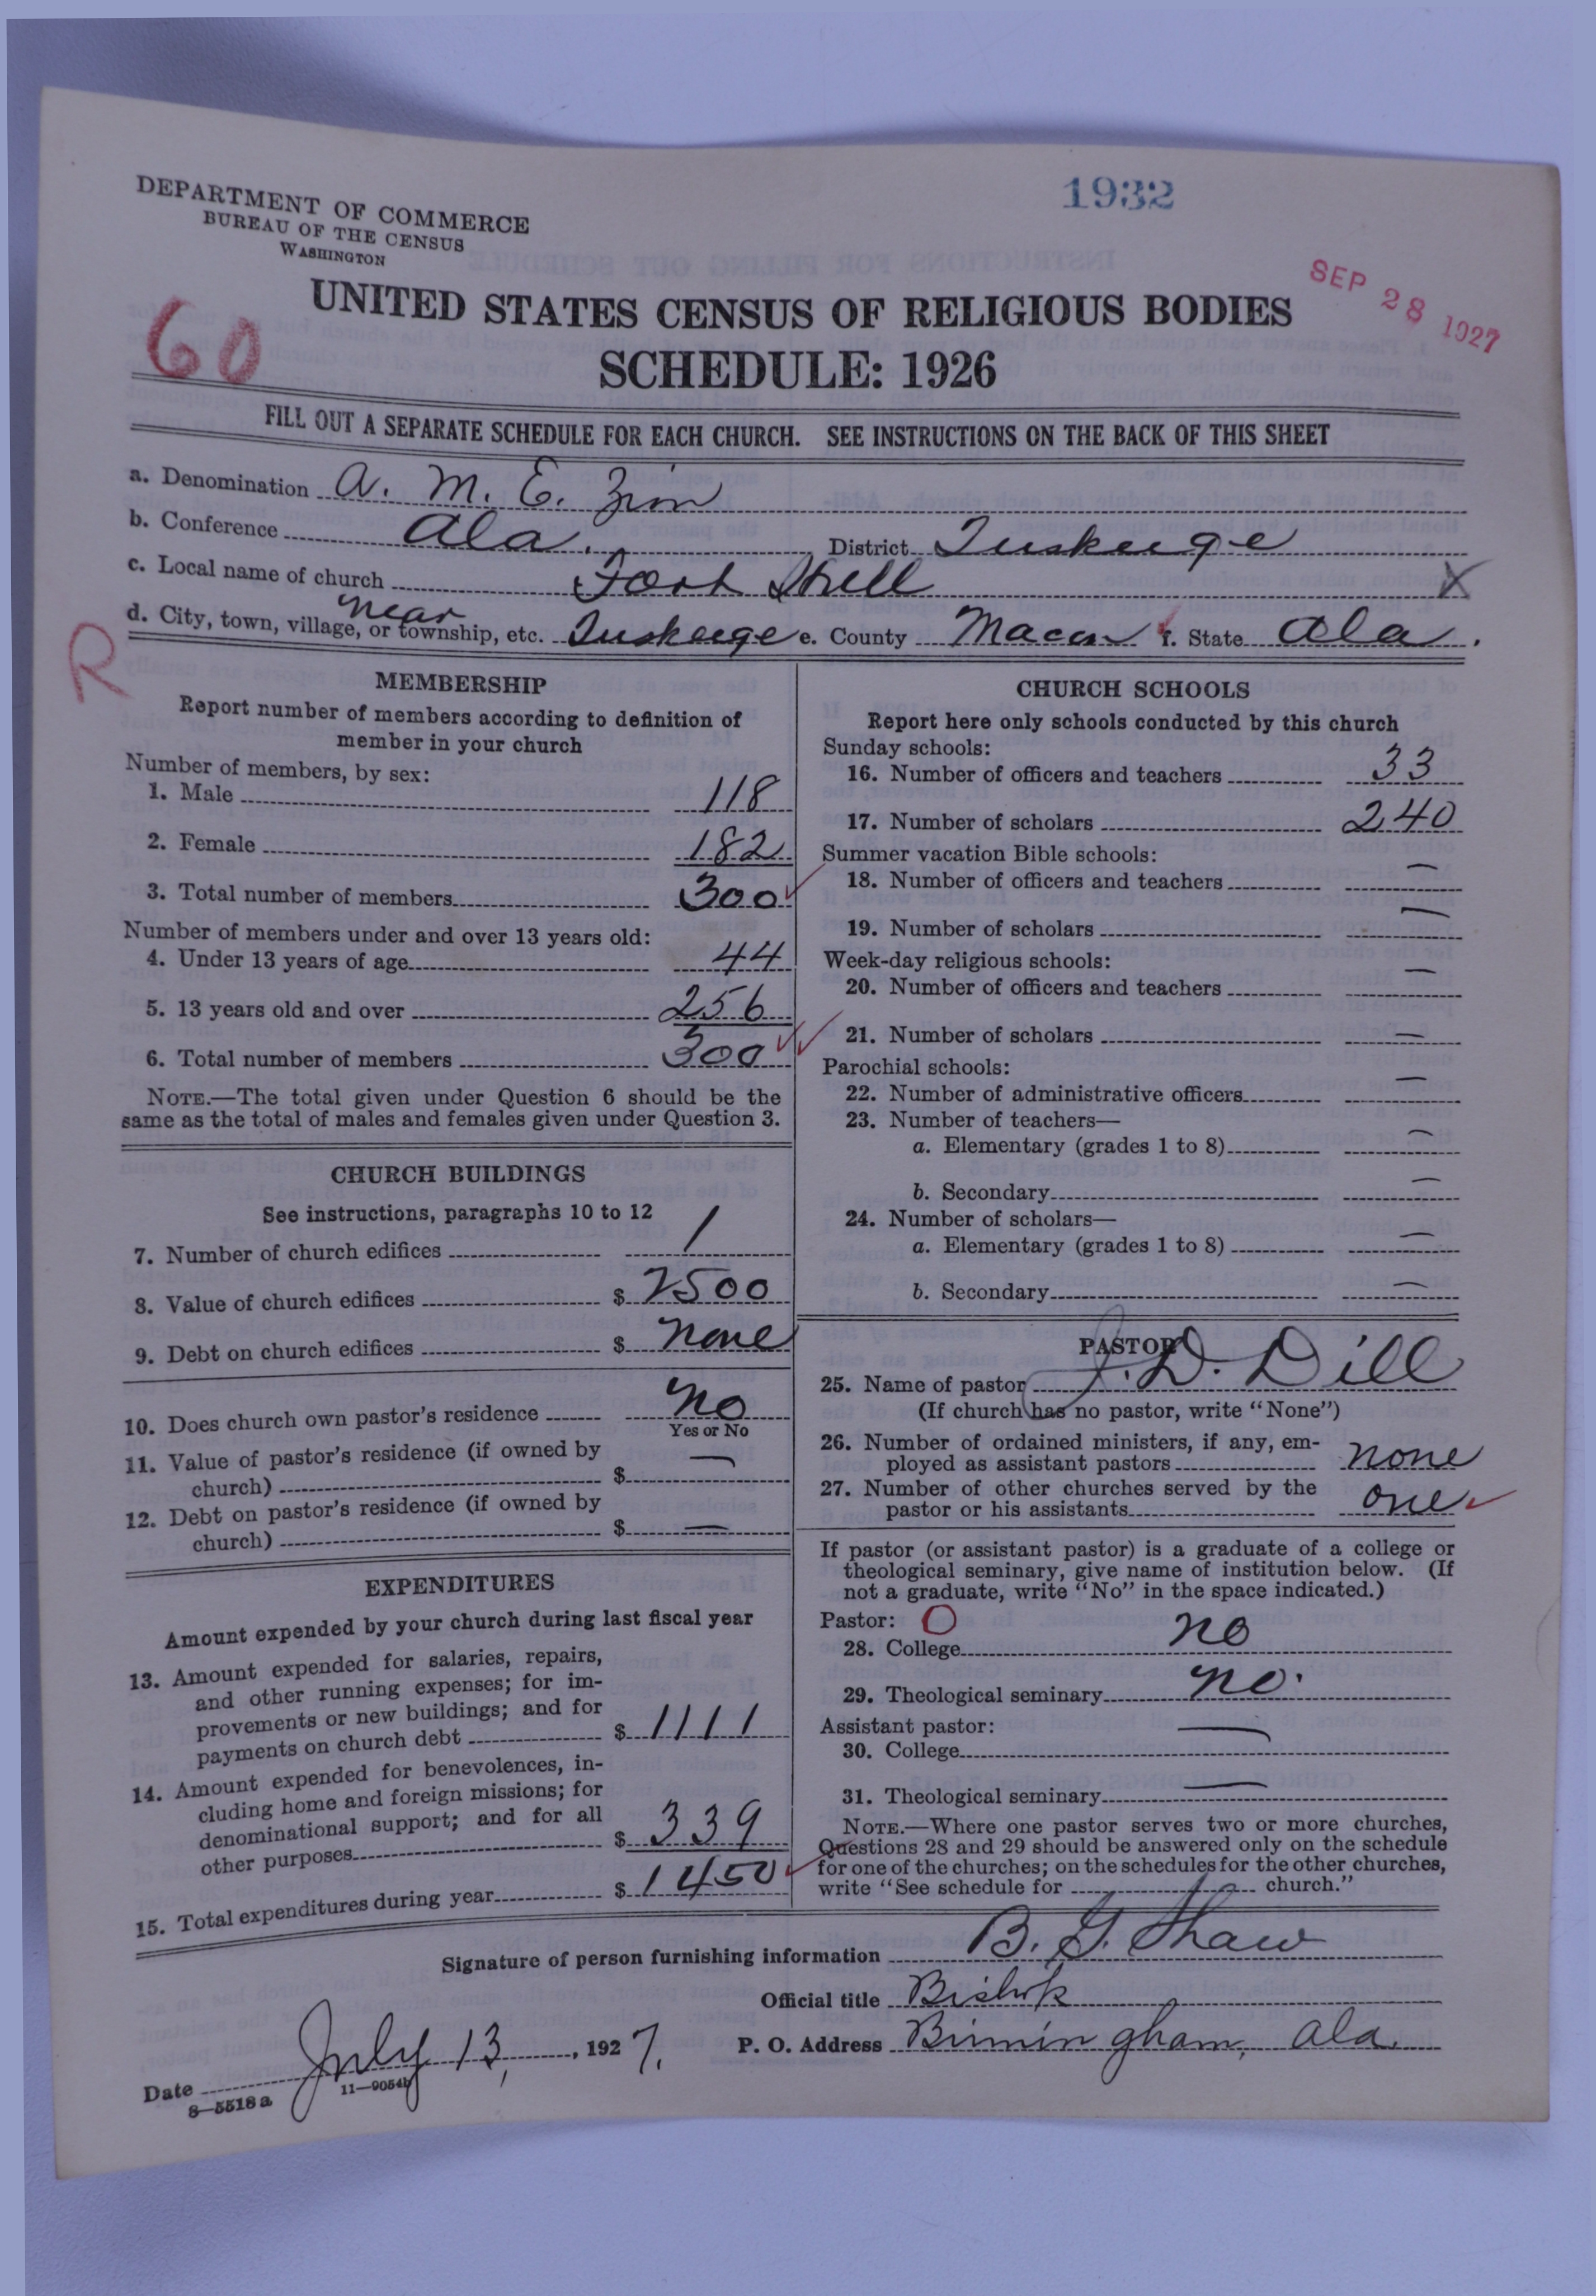 1932
DEPARTMENT OF COMMERCE
BUREAU OF THE CENSUS
WASHINGTON
SEP 28 1927
UNITED STATES CENSUS OF RELIGIOUS BODIES
60
SCHEDULE: 1926
FILL OUT A SEPARATE SCHEDULE FOR EACH CHURCH. SEE INSTRUCTIONS ON THE BACK OF THIS SHEET
a. Denomination A. M. E. Zion
b. Conference Ala. District Tuskeege
c. Local name of church X
near
d. City, town, village, or township, etc. Tuskeege e. County Macon f. State Ala.
R
MEMBERSHIP
Report number of members according to definition of
member in your church
Number of members, by sex:
1. Male 118
2. Female 182
3. Total number of members 300
Number of members under and over 13 years old:
4. Under 13 years of age 44
5. 13 years old and over 256
6. Total number of members 300
NOTE.—The total given under Question 6 should be the
same as the total of males and females given under Question 3.
CHURCH BUILDINGS
See instructions, paragraphs 10 to 12
7. Number of church edifices 1
8. Value of church edifices $ 2500
9. Debt on church edifices $ none
10. Does church own pastor's residence no
Yes or No
11. Value of pastor's residence (if owned by
church) $ —
12. Debt on pastor's residence (if owned by
church) $ —
EXPENDITURES
Amount expended by your church during last fiscal year
13. Amount expended for salaries, repairs,
and other running expenses; for im-
provements or new buildings; and for
payments on church debt $ 1111
14. Amount expended for benevolences, in-
cluding home and foreign missions; for
denominational support; and for all
other purposes $ 339
15. Total expenditures during year $ 1450
CHURCH SCHOOLS
Report here only schools conducted by this church
Sunday schools:
16. Number of officers and teachers 33
17. Number of scholars 240
Summer vacation Bible schools:
18. Number of officers and teachers —
19. Number of scholars —
Week-day religious schools:
20. Number of officers and teachers —
21. Number of scholars —
Parochial schools:
22. Number of administrative officers —
23. Number of teachers—
a. Elementary (grades 1 to 8) —
b. Secondary —
24. Number of scholars—
a. Elementary (grades 1 to 8) —
b. Secondary —
PASTOR
25. Name of pastor J. D. Dill
(If church has no pastor, write "None")
26. Number of ordained ministers, if any, em-
ployed as assistant pastors none
27. Number of other churches served by the
pastor or his assistants one
If pastor (or assistant pastor) is a graduate of a college or
theological seminary, give name of institution below. (If
not a graduate, write "No" in the space indicated.)
Pastor: O
28. College no
29. Theological seminary no.
Assistant pastor:
30. College —
31. Theological seminary —
NOTE.—Where one pastor serves two or more churches,
Questions 28 and 29 should be answered only on the schedule
for one of the churches; on the schedules for the other churches,
write "See schedule for church."
Signature of person furnishing information B. G. Shaw
Official title Bishop
Date July 13, 1927. P. O. Address Birmingham, Ala.
8—5518 a 11—9054b